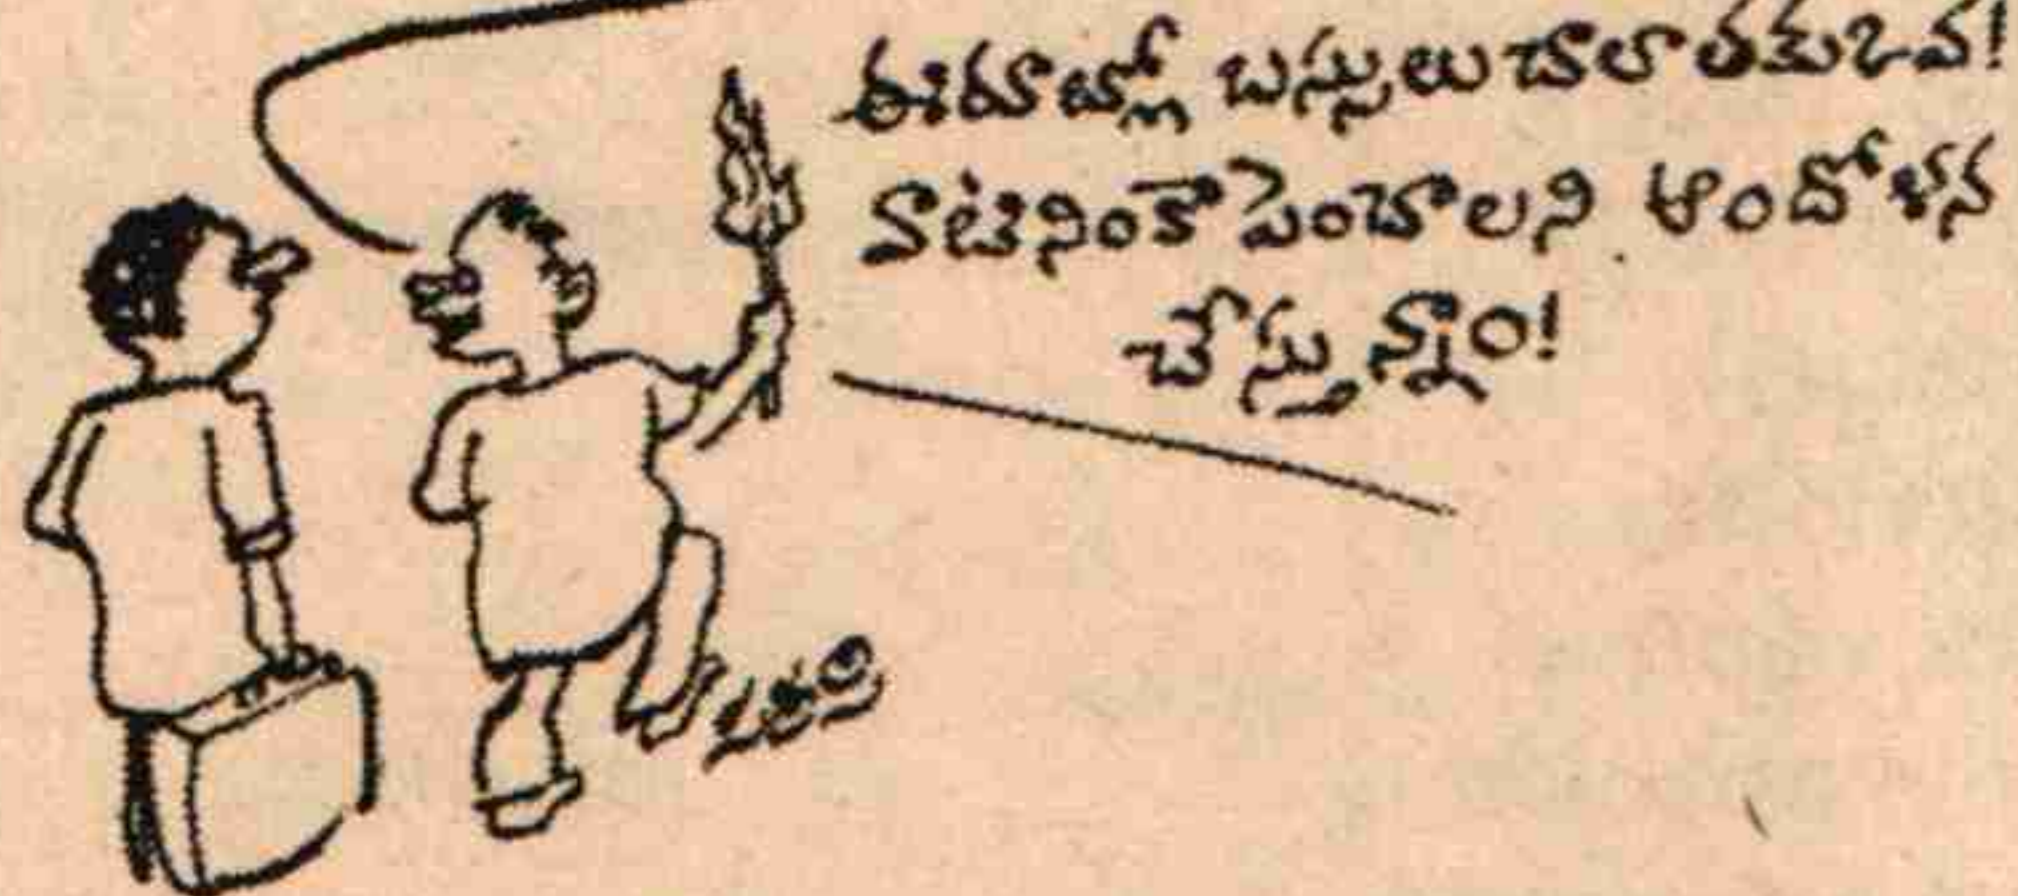 ఈరూట్లో బస్సులు చాలా తక్కువ!
వాటినింకా పెంచాలని ఆందోళన
చేస్తున్నాం!